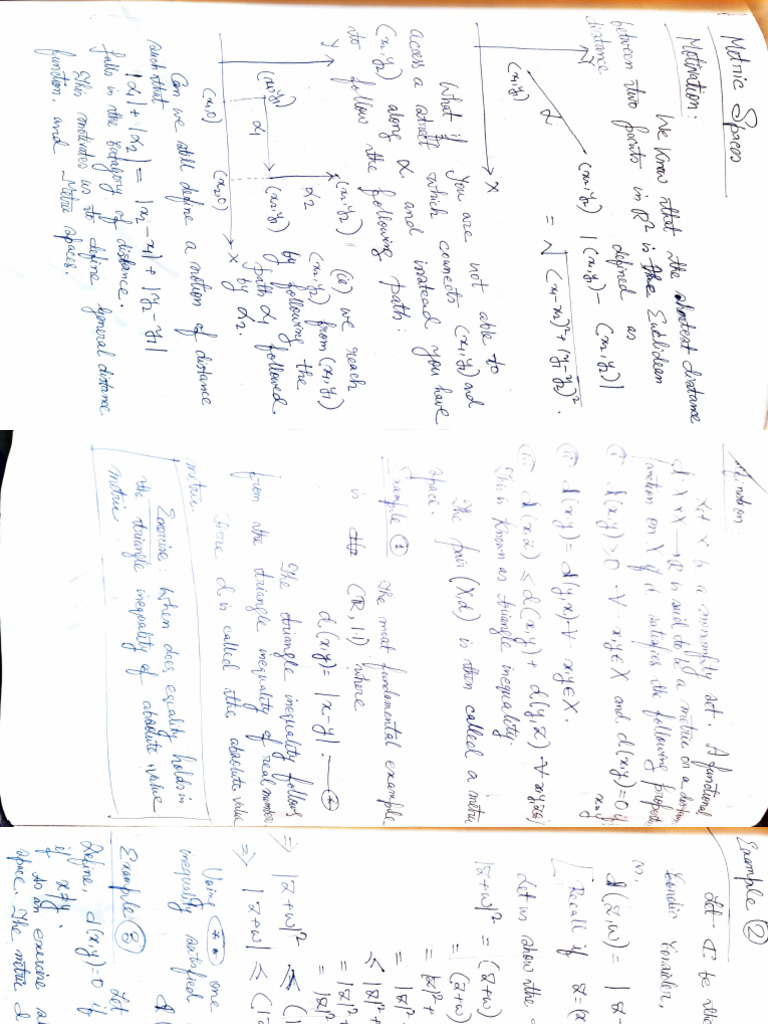 Metric Spaces
Motivation:
We know that the shortest distance
between two points in R² is the Euclidean
distance
defined as
Y
X
(x₁,y₁)
α
(x₂,y₂)
|(x₁,y₁) - (x₂,y₂)|
= √(x₁-x₂)²+(y₁-y₂)².
What if you are not able to
access a street which connects (x₁,y₁) and
(x₂,y₂) along α and instead you have
to follow the following path:
Y
(x₁,y₁)
α₁
(x₂,y₁)
α₂
(x₂,y₂)
X
(x₁,0)
(x₂,0)
(ie) we reach
(x₂,y₂) from (x₁,y₁)
by following the
path α₁ followed
by α₂.
Can we still define a notion of distance
such that
|α₁| + |α₂| = |x₂-x₁| + |y₂-y₁|
falls in the category of distance.
This motivates us to define general distance
function, and Metric spaces.
Definition
Let X be a nonempty set. A functional
d: X×X → R is said to be a metric or a distance
function on X if d satisfies the following properties
(i) d(x,y) ≥ 0 ∀ x,y ∈ X and d(x,y)=0 iff
x=y
(ii) d(x,y) = d(y,x) ∀ x,y ∈ X.
(iii) d(x,z) ≤ d(x,y) + d(y,z) ∀ x,y,z ∈
This is known as triangle inequality.
The pair (X,d) is then called a metric
space.
Example ①
The most fundamental example
is (R, |.|) where
d(x,y) = |x-y|. — ⊛
The triangle inequality follows
from the triangle inequality of real number
Here d is called the absolute value
metric.
Exercise: When does equality holds in
the triangle inequality of absolute value
metric.
Example ②
Let C be the
variables,
is.
d(z,w) = |z-
[Recall if z=(x
Let us show the
|z+w|² = (z+w)
= (z+w)
= |z|² +
= |z|²
≤ |z|² +
= |z|²
= |z|² +
⇒ |z+w|² ≤ (|
⇒ |z+w| ≤ (|z
Using one
inequality satisfied
d(
Example ③
Let
Define, d(x,y)=0 if
if x≠y.
as an exercise
space. The metric d